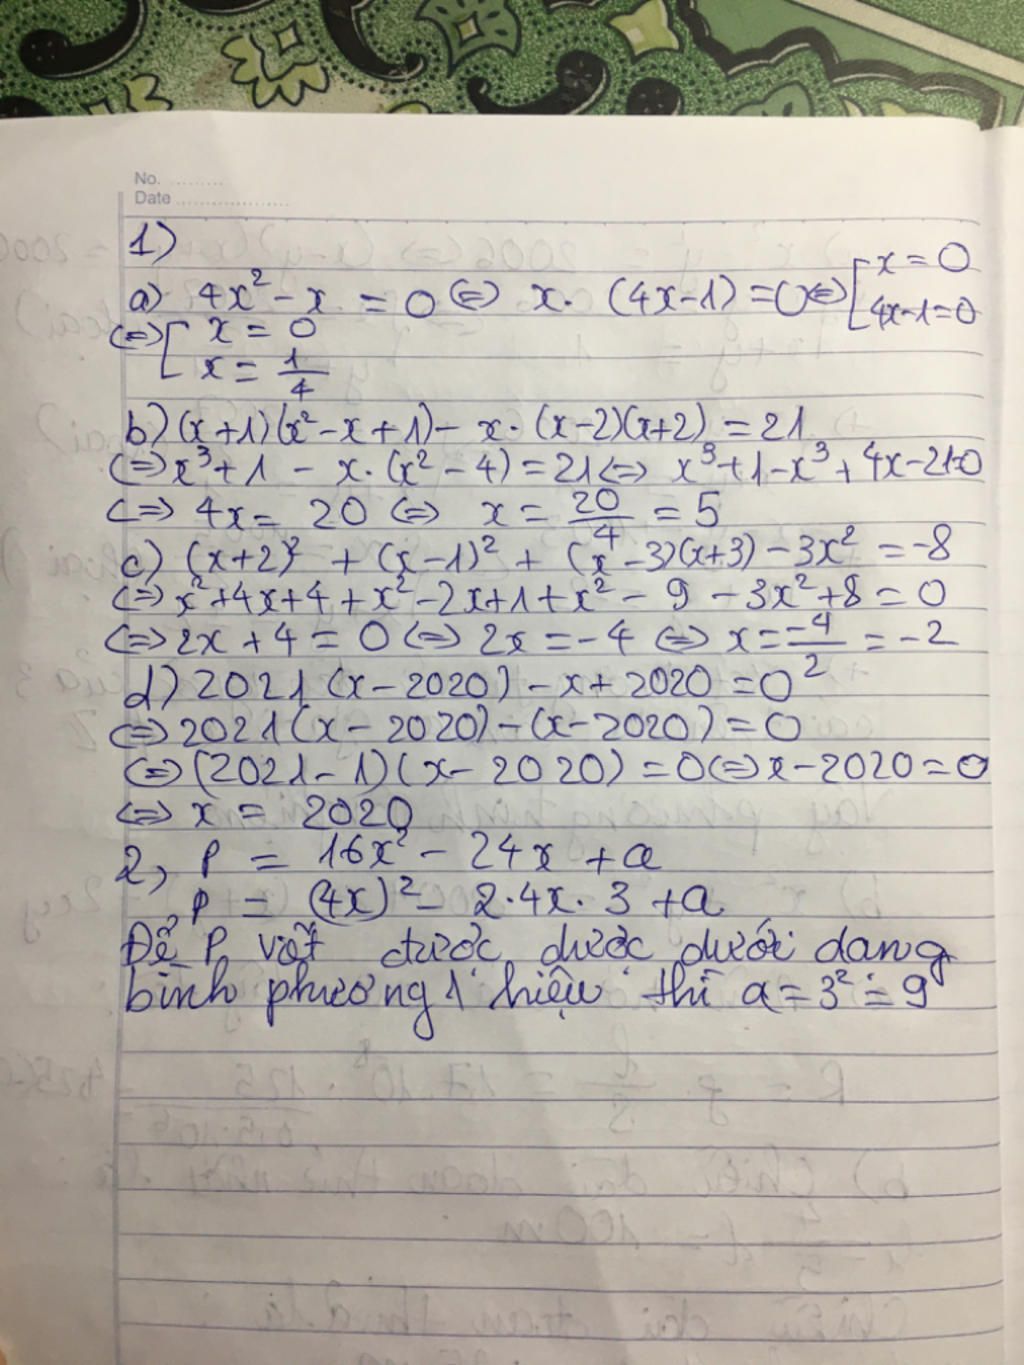 No. ..........
Date ....................
1)
a) 4x² - x = 0 ⇔ x. (4x-1) = 0 ⇔ [ x = 0
4x-1=0
⇔ [ x = 0
x = 1/4
b) (x+1)(x²-x+1) - x. (x-2)(x+2) = 21
⇔ x³+1 - x.(x²-4) = 21 ⇔ x³+1-x³+4x-21=0
⇔ 4x = 20 ⇔ x = 20/4 = 5
c) (x+2)² + (x-1)² + (x-3)(x+3) - 3x² = -8
⇔ x²+4x+4+x²-2x+1+x²-9-3x²+8=0
⇔ 2x+4=0 ⇔ 2x=-4 ⇔ x=-4/2=-2
d) 2021(x-2020)-x+2020=0
⇔ 2021(x-2020)-(x-2020)=0
⇔ (2021-1)(x-2020)=0 ⇔ x-2020=0
⇔ x = 2020
2, P = 16x² - 24x + a
P = (4x)² - 2.4x.3 + a
Để P viết được được dưới dạng
bình phương 1 hiệu thì a = 3² = 9